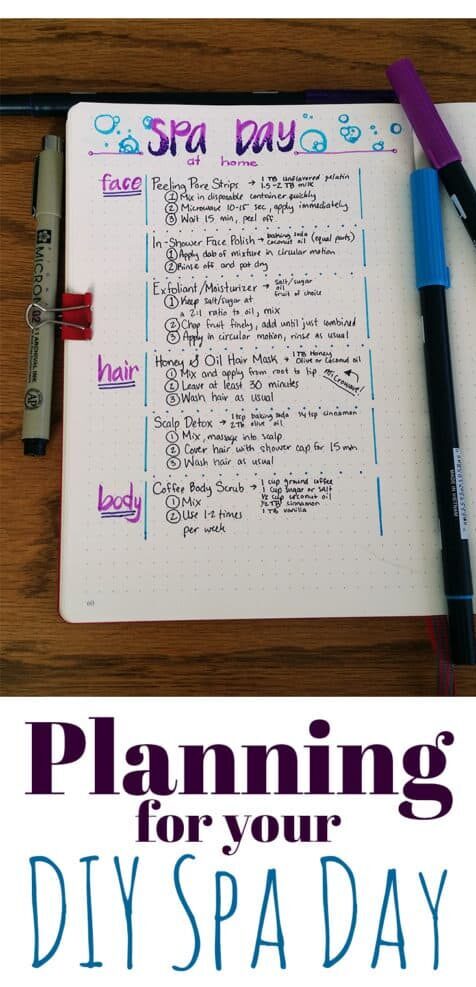 SPA DAY
at home
face
Peeling Pore Strips → 1 TB unflavored gelatin
1.5-2 TB milk
① Mix in disposable container quickly
② Microwave 10-15 sec, apply immediately
③ Wait 15 min, peel off
In-Shower Face Polish → baking soda
coconut oil (equal parts)
① Apply dab of mixture in circular motion
② Rinse off and pat dry
Exfoliant/Moisturizer → salt/sugar
oil
fruit of choice
① Keep salt/sugar at
a 2:1 ratio to oil, mix
② Chop fruit finely, add until just combined
③ Apply in circular motion, rinse as usual
hair
Honey & Oil Hair Mask → 1 TB Honey
Olive or Coconut oil
① Mix and apply from root to tip
Microwave!
② Leave at least 30 minutes
③ Wash hair as usual
Scalp Detox → 1 tsp baking soda 1/4 tsp cinnamon
2 TB olive oil
① Mix, massage into scalp
② Cover hair with shower cap for 15 min
③ Wash hair as usual
body
Coffee Body Scrub → 1 cup ground coffee
1 cup sugar or salt
1/2 cup coconut oil
1/2 TB cinnamon
1 TB vanilla
① Mix
② Use 1-2 times
per week
60
MICRON
02
ARCHIVAL INK
MADE IN VIETNAM
Planning
for your
DIY SPA DAY